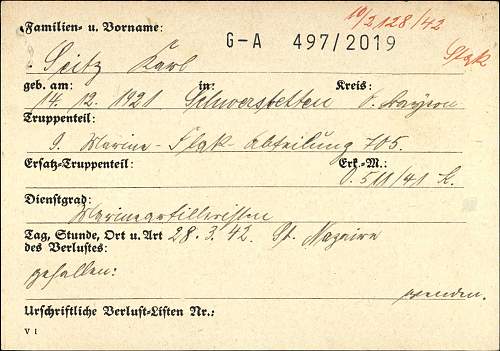 10/2128/42
Familien- u. Vorname:
G-A 497/2019
Seitz Karl
Flak
geb. am: in: Kreis:
14. 12. 1921 Schwerstetten O. Bayern
Truppenteil:
9. Marine-Flak-Abteilung 705.
Ersatz-Truppenteil: Erk.-M.:
O. 511/41 K.
Dienstgrad:
Marineartilleristen
Tag, Stunde, Ort u. Art 28. 3. 42. St. Nazaire
des Verlustes:
gefallen:
wenden.
Urschriftliche Verlust-Listen Nr.:
V I